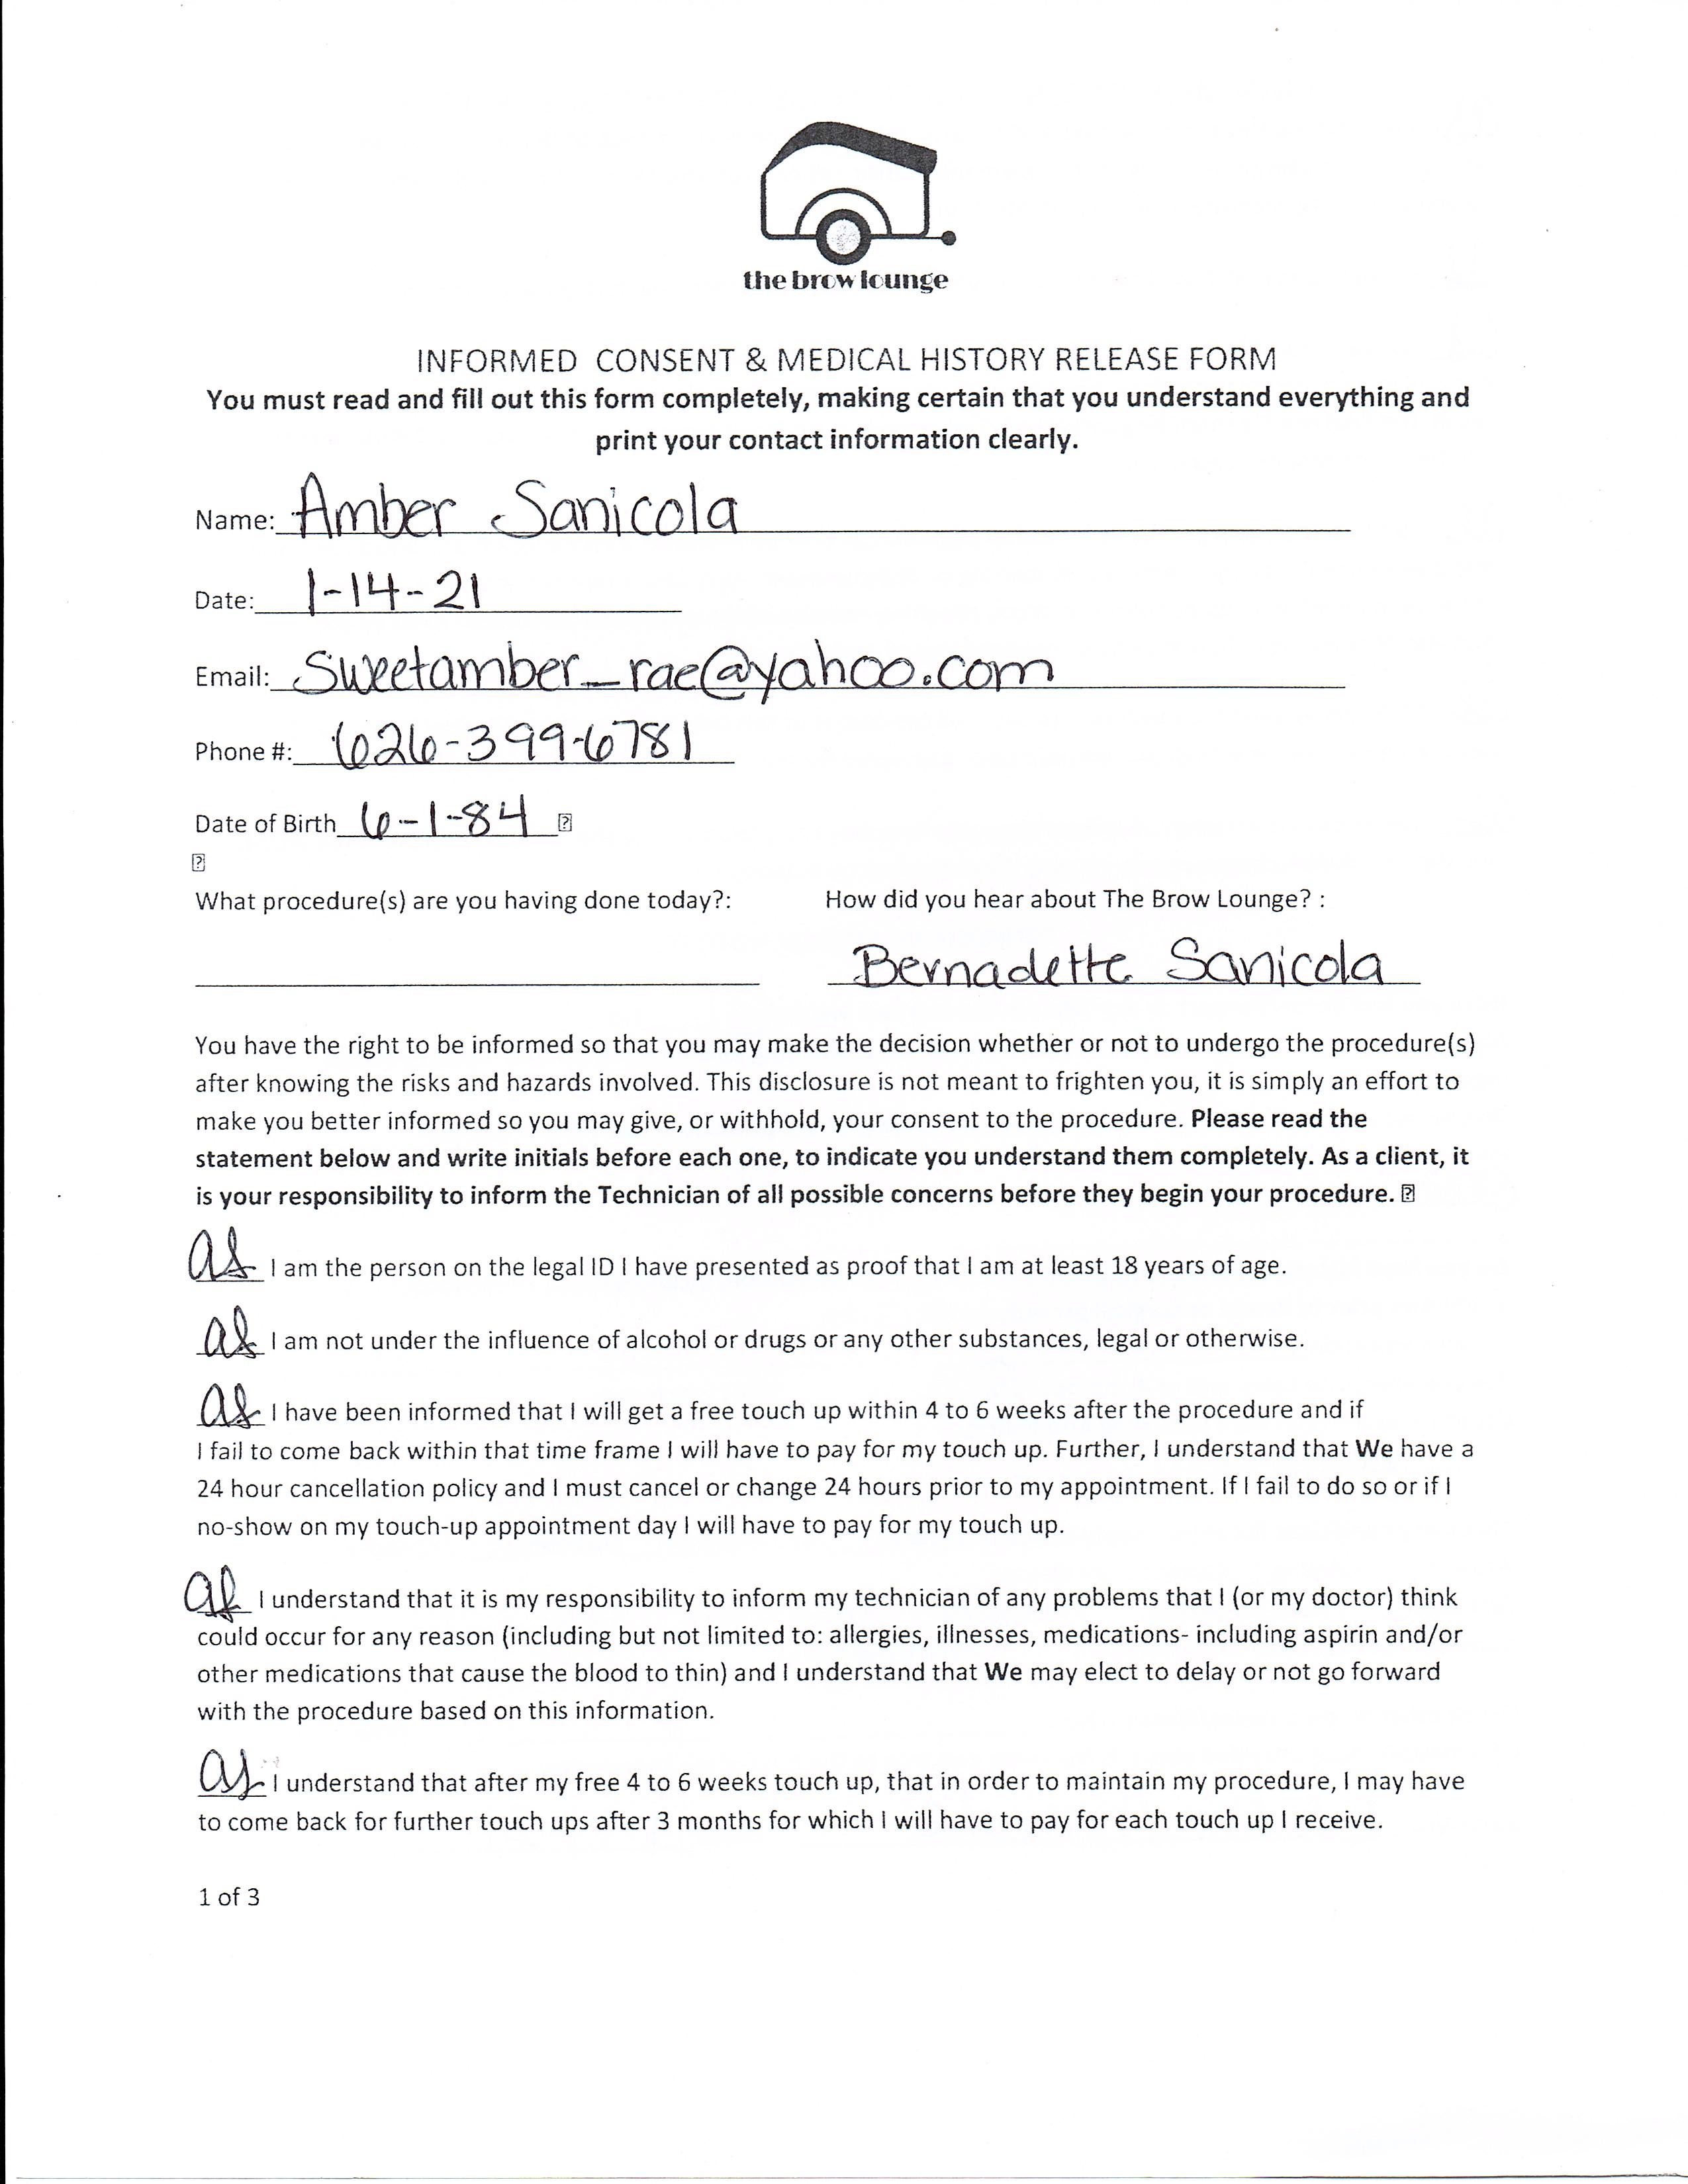 the brow lounge
INFORMED CONSENT & MEDICAL HISTORY RELEASE FORM
You must read and fill out this form completely, making certain that you understand everything and
print your contact information clearly.
Name: Amber Sanicola
Date: 1-14-21
Email: Sweetamber_rae@yahoo.com
Phone #: 626-399-6781
Date of Birth 6-1-84 ?
?
What procedure(s) are you having done today?: How did you hear about The Brow Lounge? :
Bernadette Sanicola
You have the right to be informed so that you may make the decision whether or not to undergo the procedure(s)
after knowing the risks and hazards involved. This disclosure is not meant to frighten you, it is simply an effort to
make you better informed so you may give, or withhold, your consent to the procedure. Please read the
statement below and write initials before each one, to indicate you understand them completely. As a client, it
is your responsibility to inform the Technician of all possible concerns before they begin your procedure. ?
as I am the person on the legal ID I have presented as proof that I am at least 18 years of age.
as I am not under the influence of alcohol or drugs or any other substances, legal or otherwise.
as I have been informed that I will get a free touch up within 4 to 6 weeks after the procedure and if
I fail to come back within that time frame I will have to pay for my touch up. Further, I understand that We have a
24 hour cancellation policy and I must cancel or change 24 hours prior to my appointment. If I fail to do so or if I
no-show on my touch-up appointment day I will have to pay for my touch up.
as I understand that it is my responsibility to inform my technician of any problems that I (or my doctor) think
could occur for any reason (including but not limited to: allergies, illnesses, medications- including aspirin and/or
other medications that cause the blood to thin) and I understand that We may elect to delay or not go forward
with the procedure based on this information.
as I understand that after my free 4 to 6 weeks touch up, that in order to maintain my procedure, I may have
to come back for further touch ups after 3 months for which I will have to pay for each touch up I receive.
1 of 3